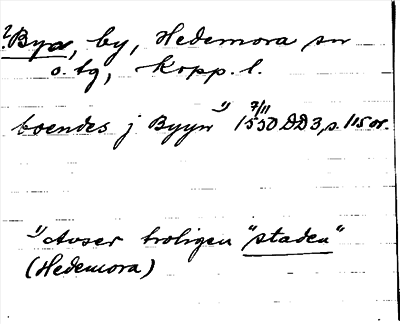 ?Bya, by, Hedemora sn
o. tg, Kopp. l.
boendes j Byyn 1) 7/11 1550 DD3, s. 115 or.
1) Avser troligen "staden"
(Hedemora)